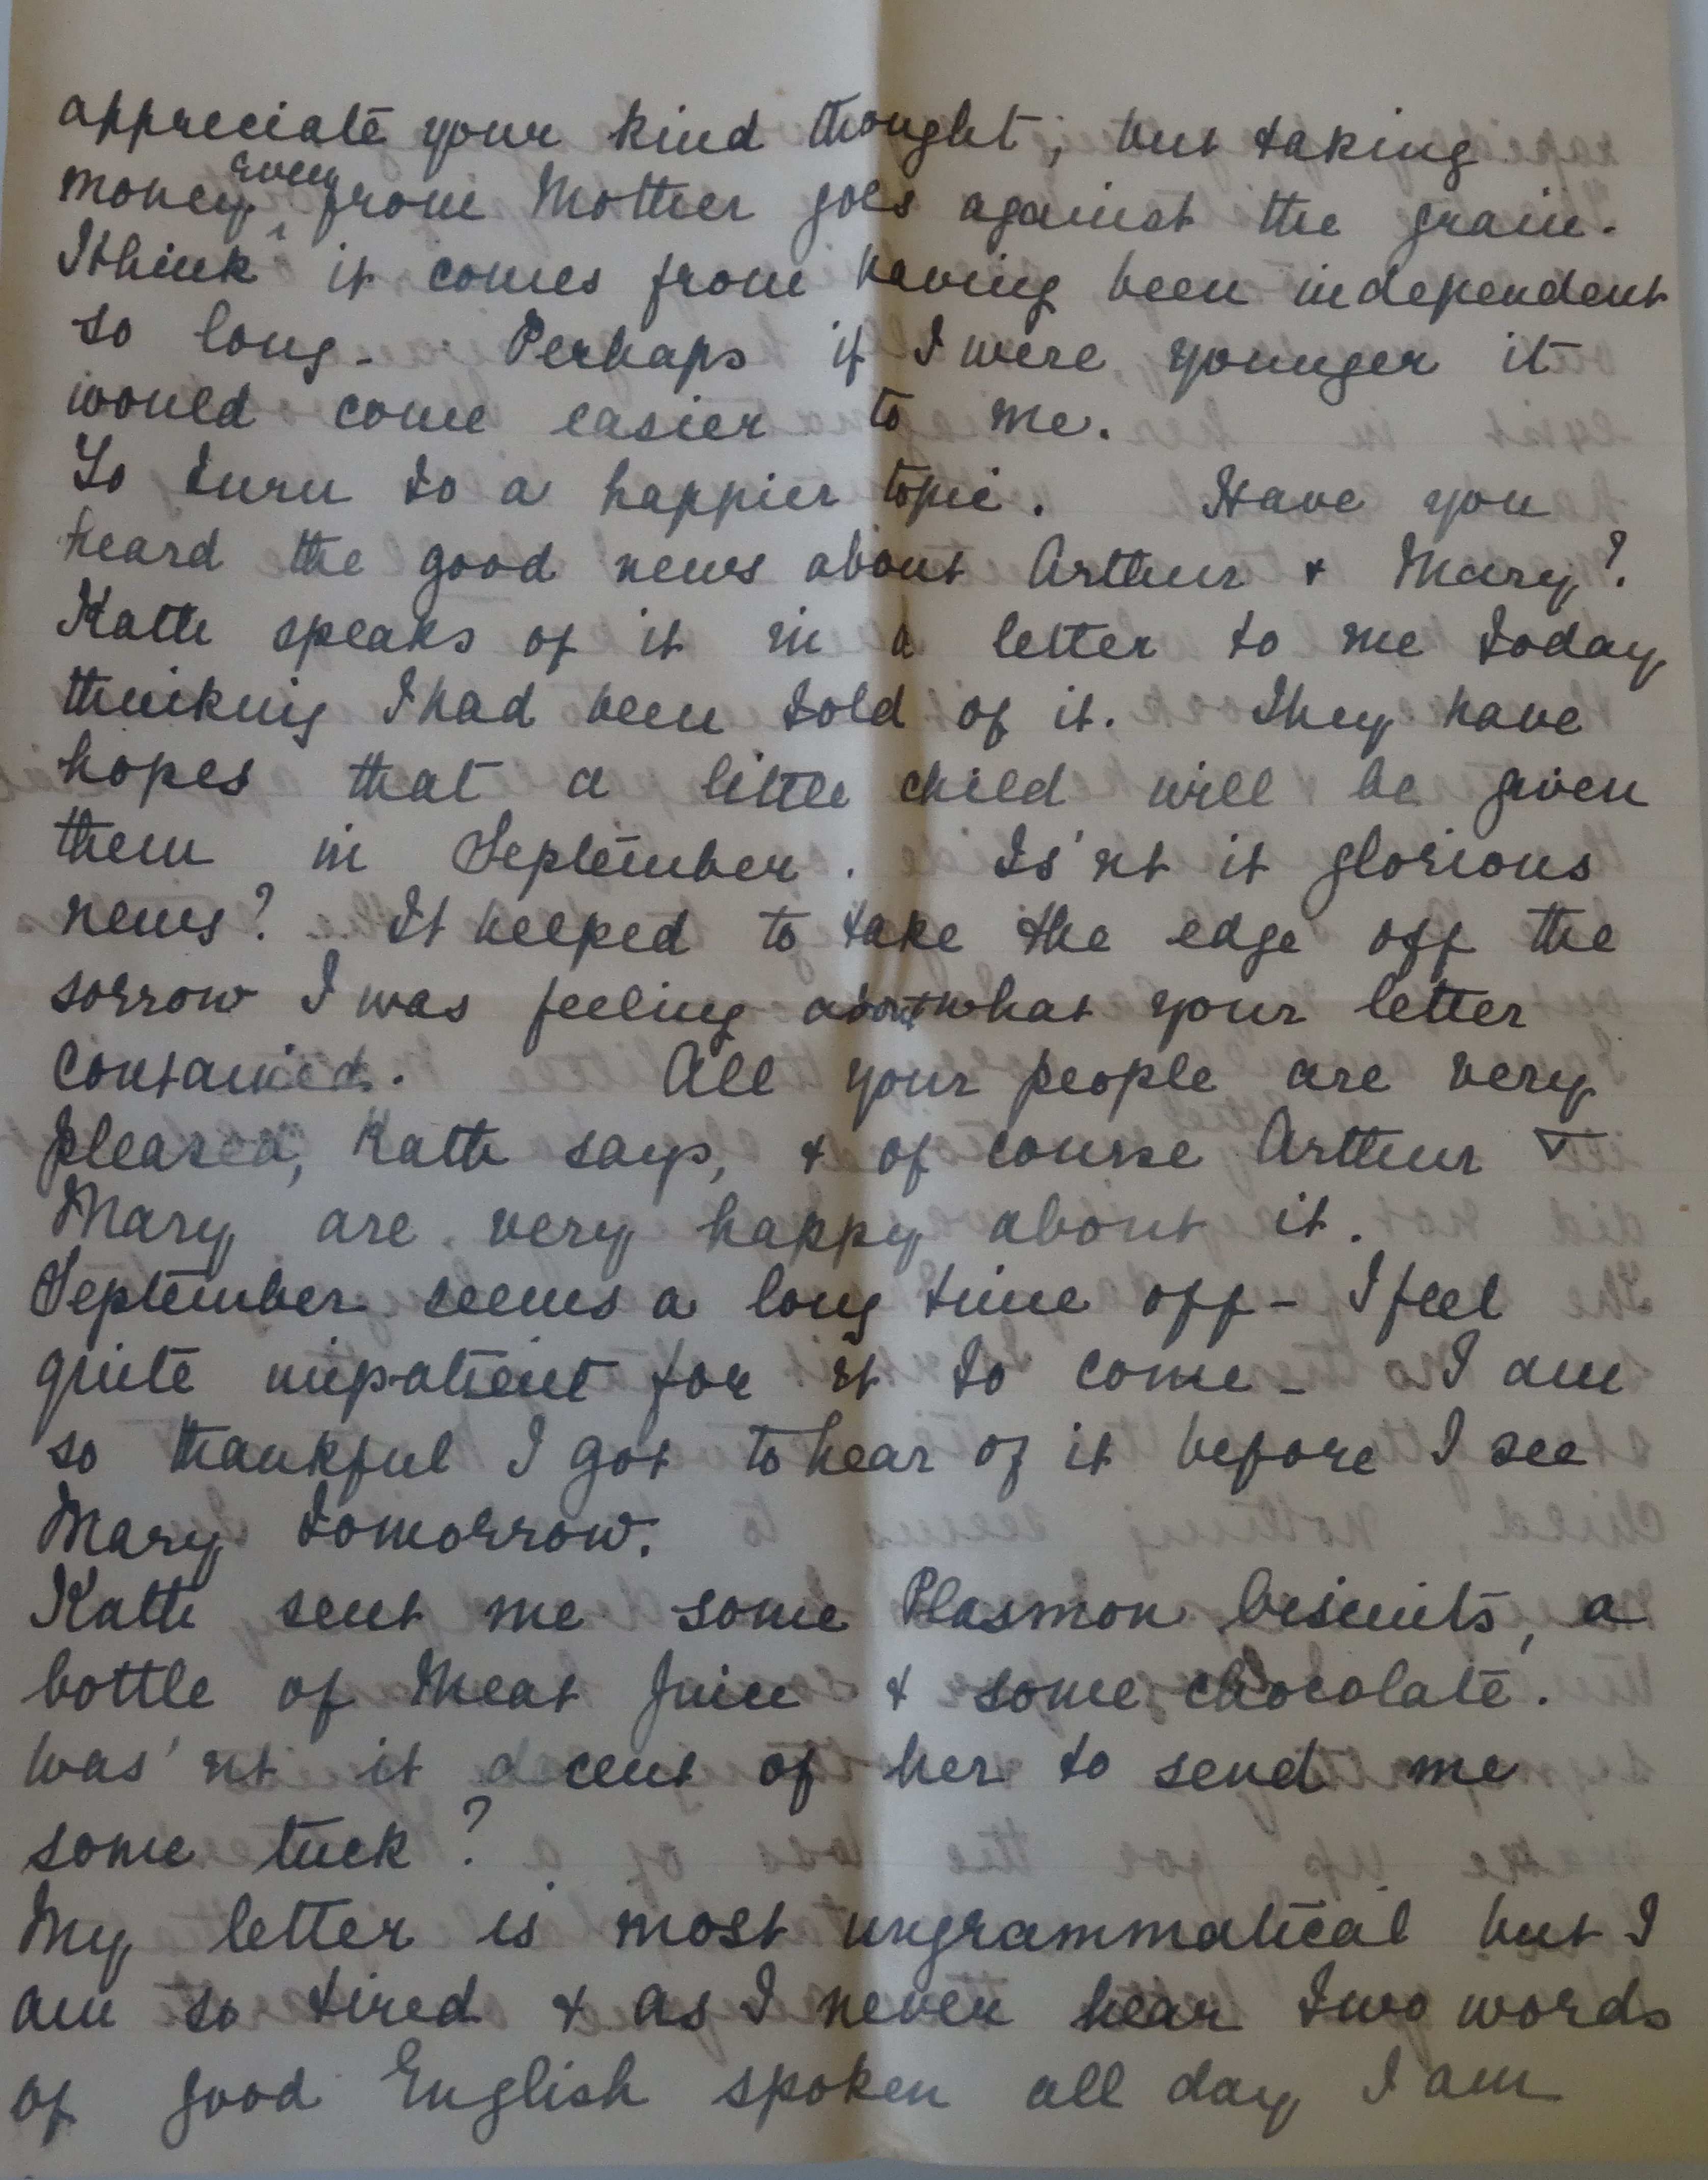 appreciate your kind thought, but taking
money even from Mother goes against the grain.
I think it comes from having been independent
so long - Perhaps if I were younger it
would come easier to me.
To turn to a happier topic. Have you
heard the good news about Arthur & Mary?
Kath speaks of it in a letter to me today
thinking I had been told of it. They have
hopes that a little child will be given
them in September. Is'nt it glorious
news? It helped to take the edge off the
sorrow I was feeling about what your letter
contained. All your people are very
pleased, Kath says, & of course Arthur &
Mary are very happy about it.
September seems a long time off - I feel
quite impatient for it to come - I am
so thankful I got to hear of it before I see
Mary tomorrow.
Kath sent me some Plasmon biscuits, a
bottle of Meat Juice & some chocolate.
Was'nt it decent of her to send me
some tuck?
My letter is most ungrammatical but I
am so tired & as I never hear two words
of good English spoken all day I am